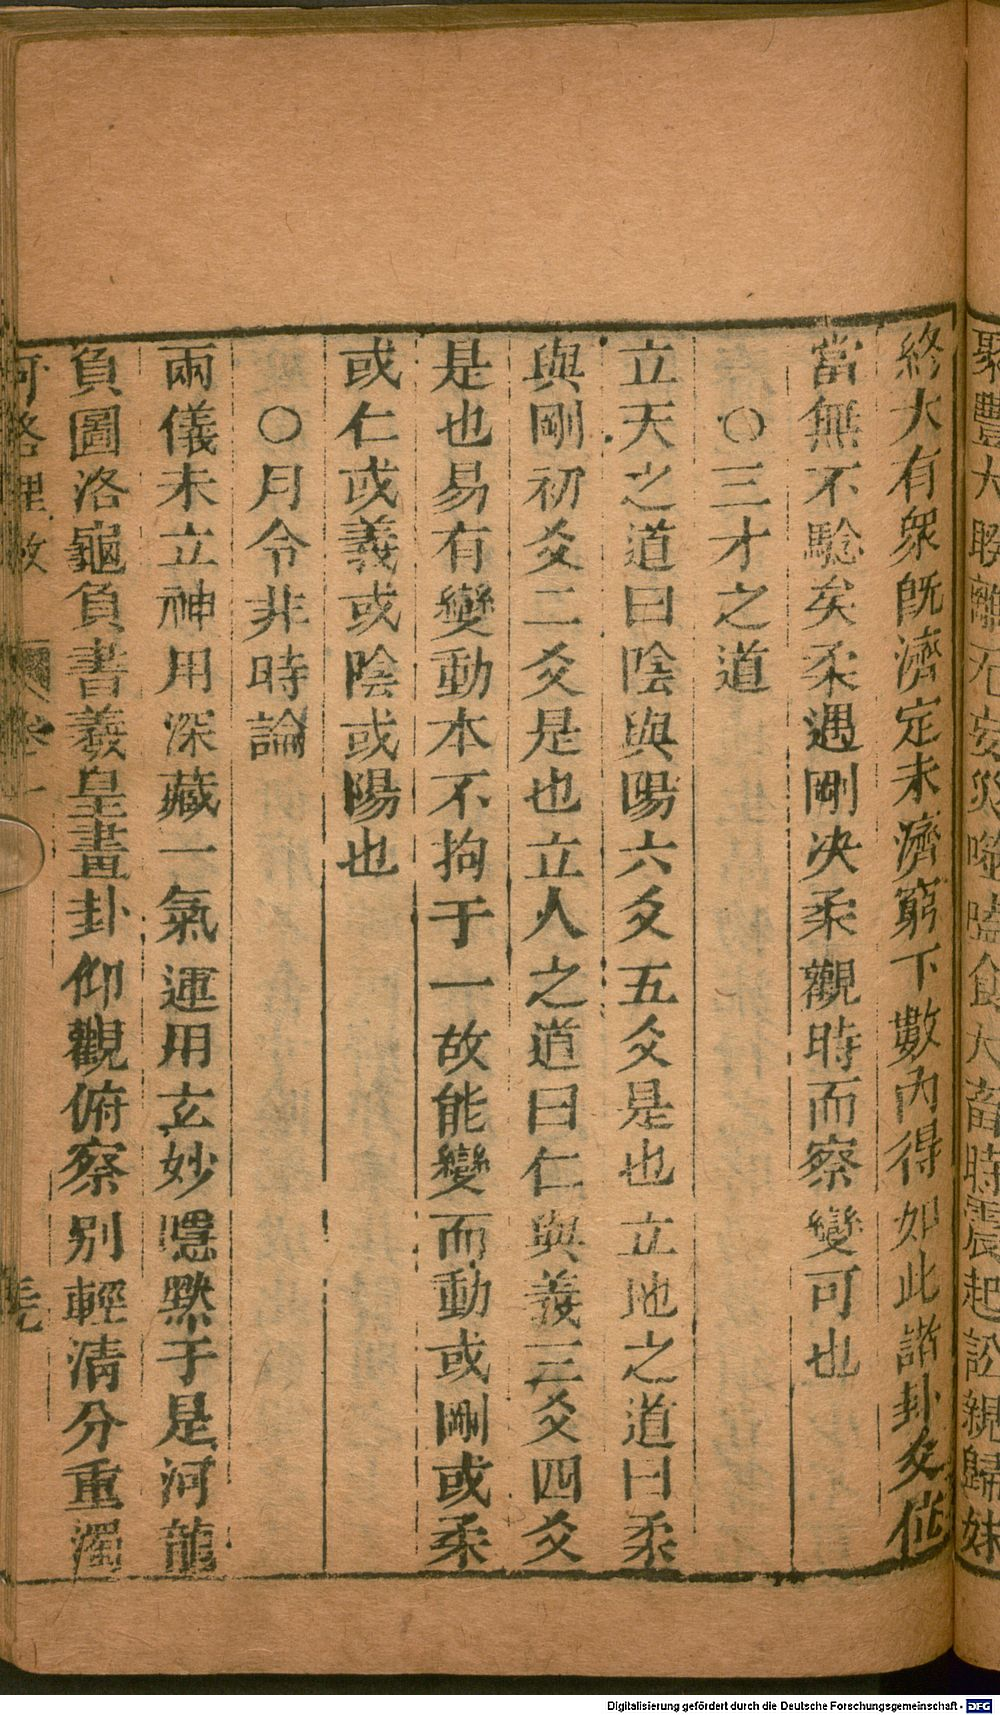 聚豐大睽離无妄災噬嗑食大畜時震起訟親歸妹
終大有衆既濟定未濟窮下數內得如此諸卦爻從
當無不騐矣柔遇剛決柔觀時而察變可也
○三才之道
立天之道曰陰與陽六爻五爻是也立地之道曰柔
與剛初爻二爻是也立人之道曰仁與義三爻四爻
是也易有變動本不拘于一故能變而動或剛或柔
或仁或義或陰或陽也
○月令非時論
兩儀未立神用深藏一氣運用玄妙隱黙于是河龍
負圖洛龜負書羲皇畫卦仰觀俯察別輕清分重濁
河洛理數 卷一
Digitalisierung gefördert durch die Deutsche Forschungsgemeinschaft - DFG